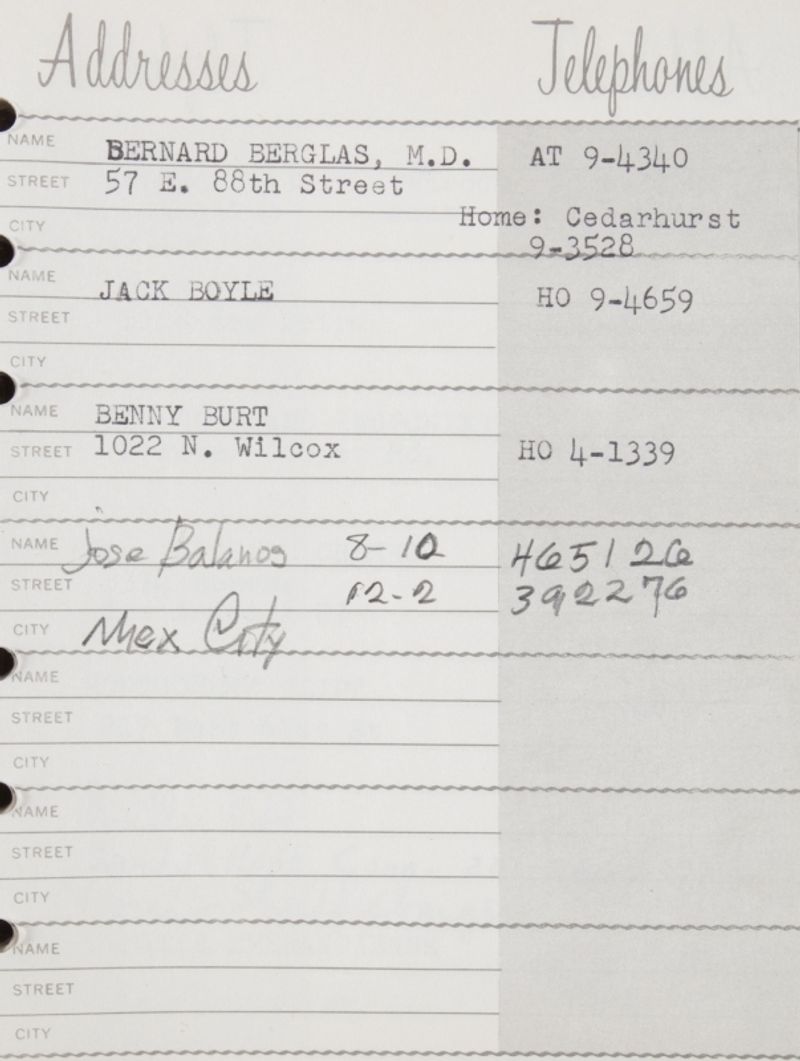 Addresses Telephones
NAME BERNARD BERGLAS, M.D. AT 9-4340
STREET 57 E. 88th Street
CITY Home: Cedarhurst
9-3528
NAME JACK BOYLE HO 9-4659
STREET
CITY
NAME BENNY BURT
STREET 1022 N. Wilcox HO 4-1339
CITY
NAME Jose Balanos 8-10 465126
STREET 12-2 392276
CITY Mex City
NAME
STREET
CITY
NAME
STREET
CITY
NAME
STREET
CITY